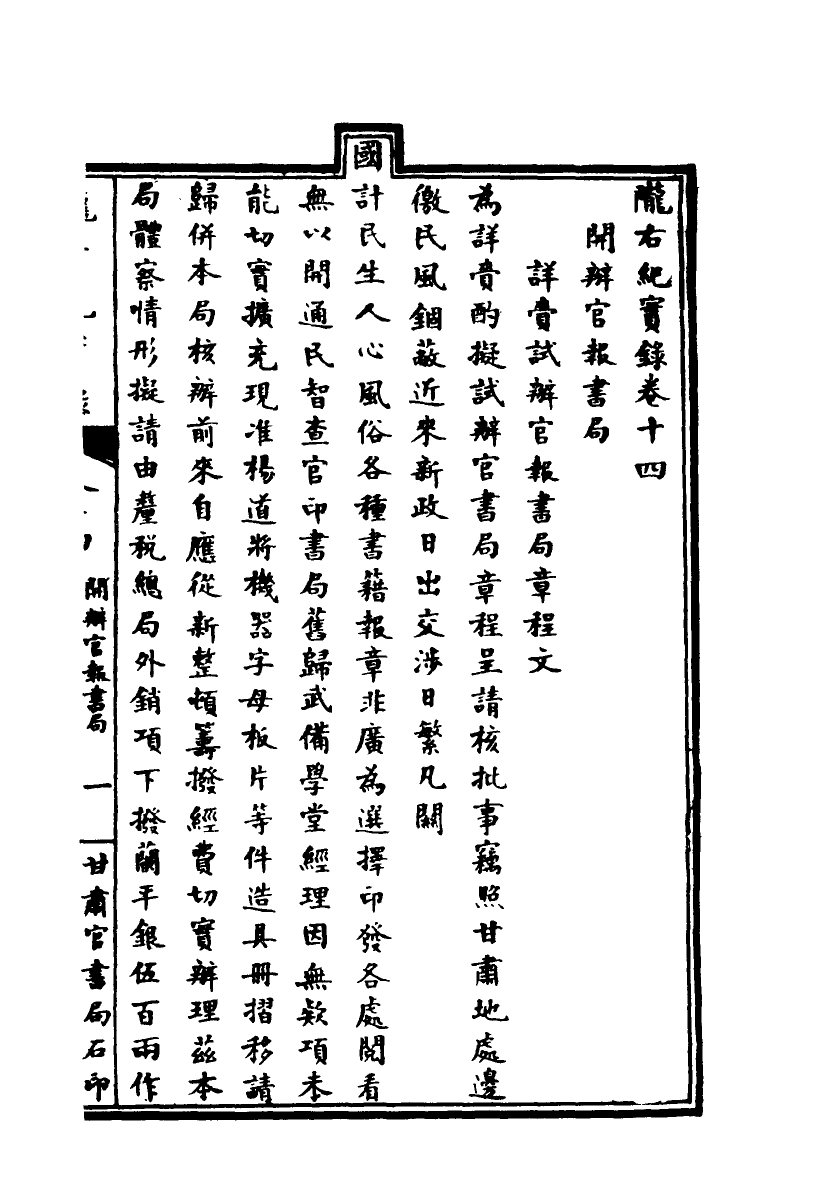 隴右紀實錄卷十四
開辦官報書局
詳賫試辦官報書局章程文
為詳賫酌擬試辦官書局章程呈請核批事竊照甘肅地處邊
徼民風錮蔽近來新政日出交涉日繁凡關
國計民生人心風俗各種書籍報章非廣為選擇印發各處閱看
無以開通民智查官印書局舊歸武備學堂經理因無欵項未
能切實擴充現准楊道將機器字母板片等件造具冊摺移請
歸併本局核辦前來自應從新整頓籌撥經費切實辦理茲本
局體察情形擬請由釐税總局外銷項下撥蘭平銀伍百兩作
開辦官報書局 一 甘肅官書局石印